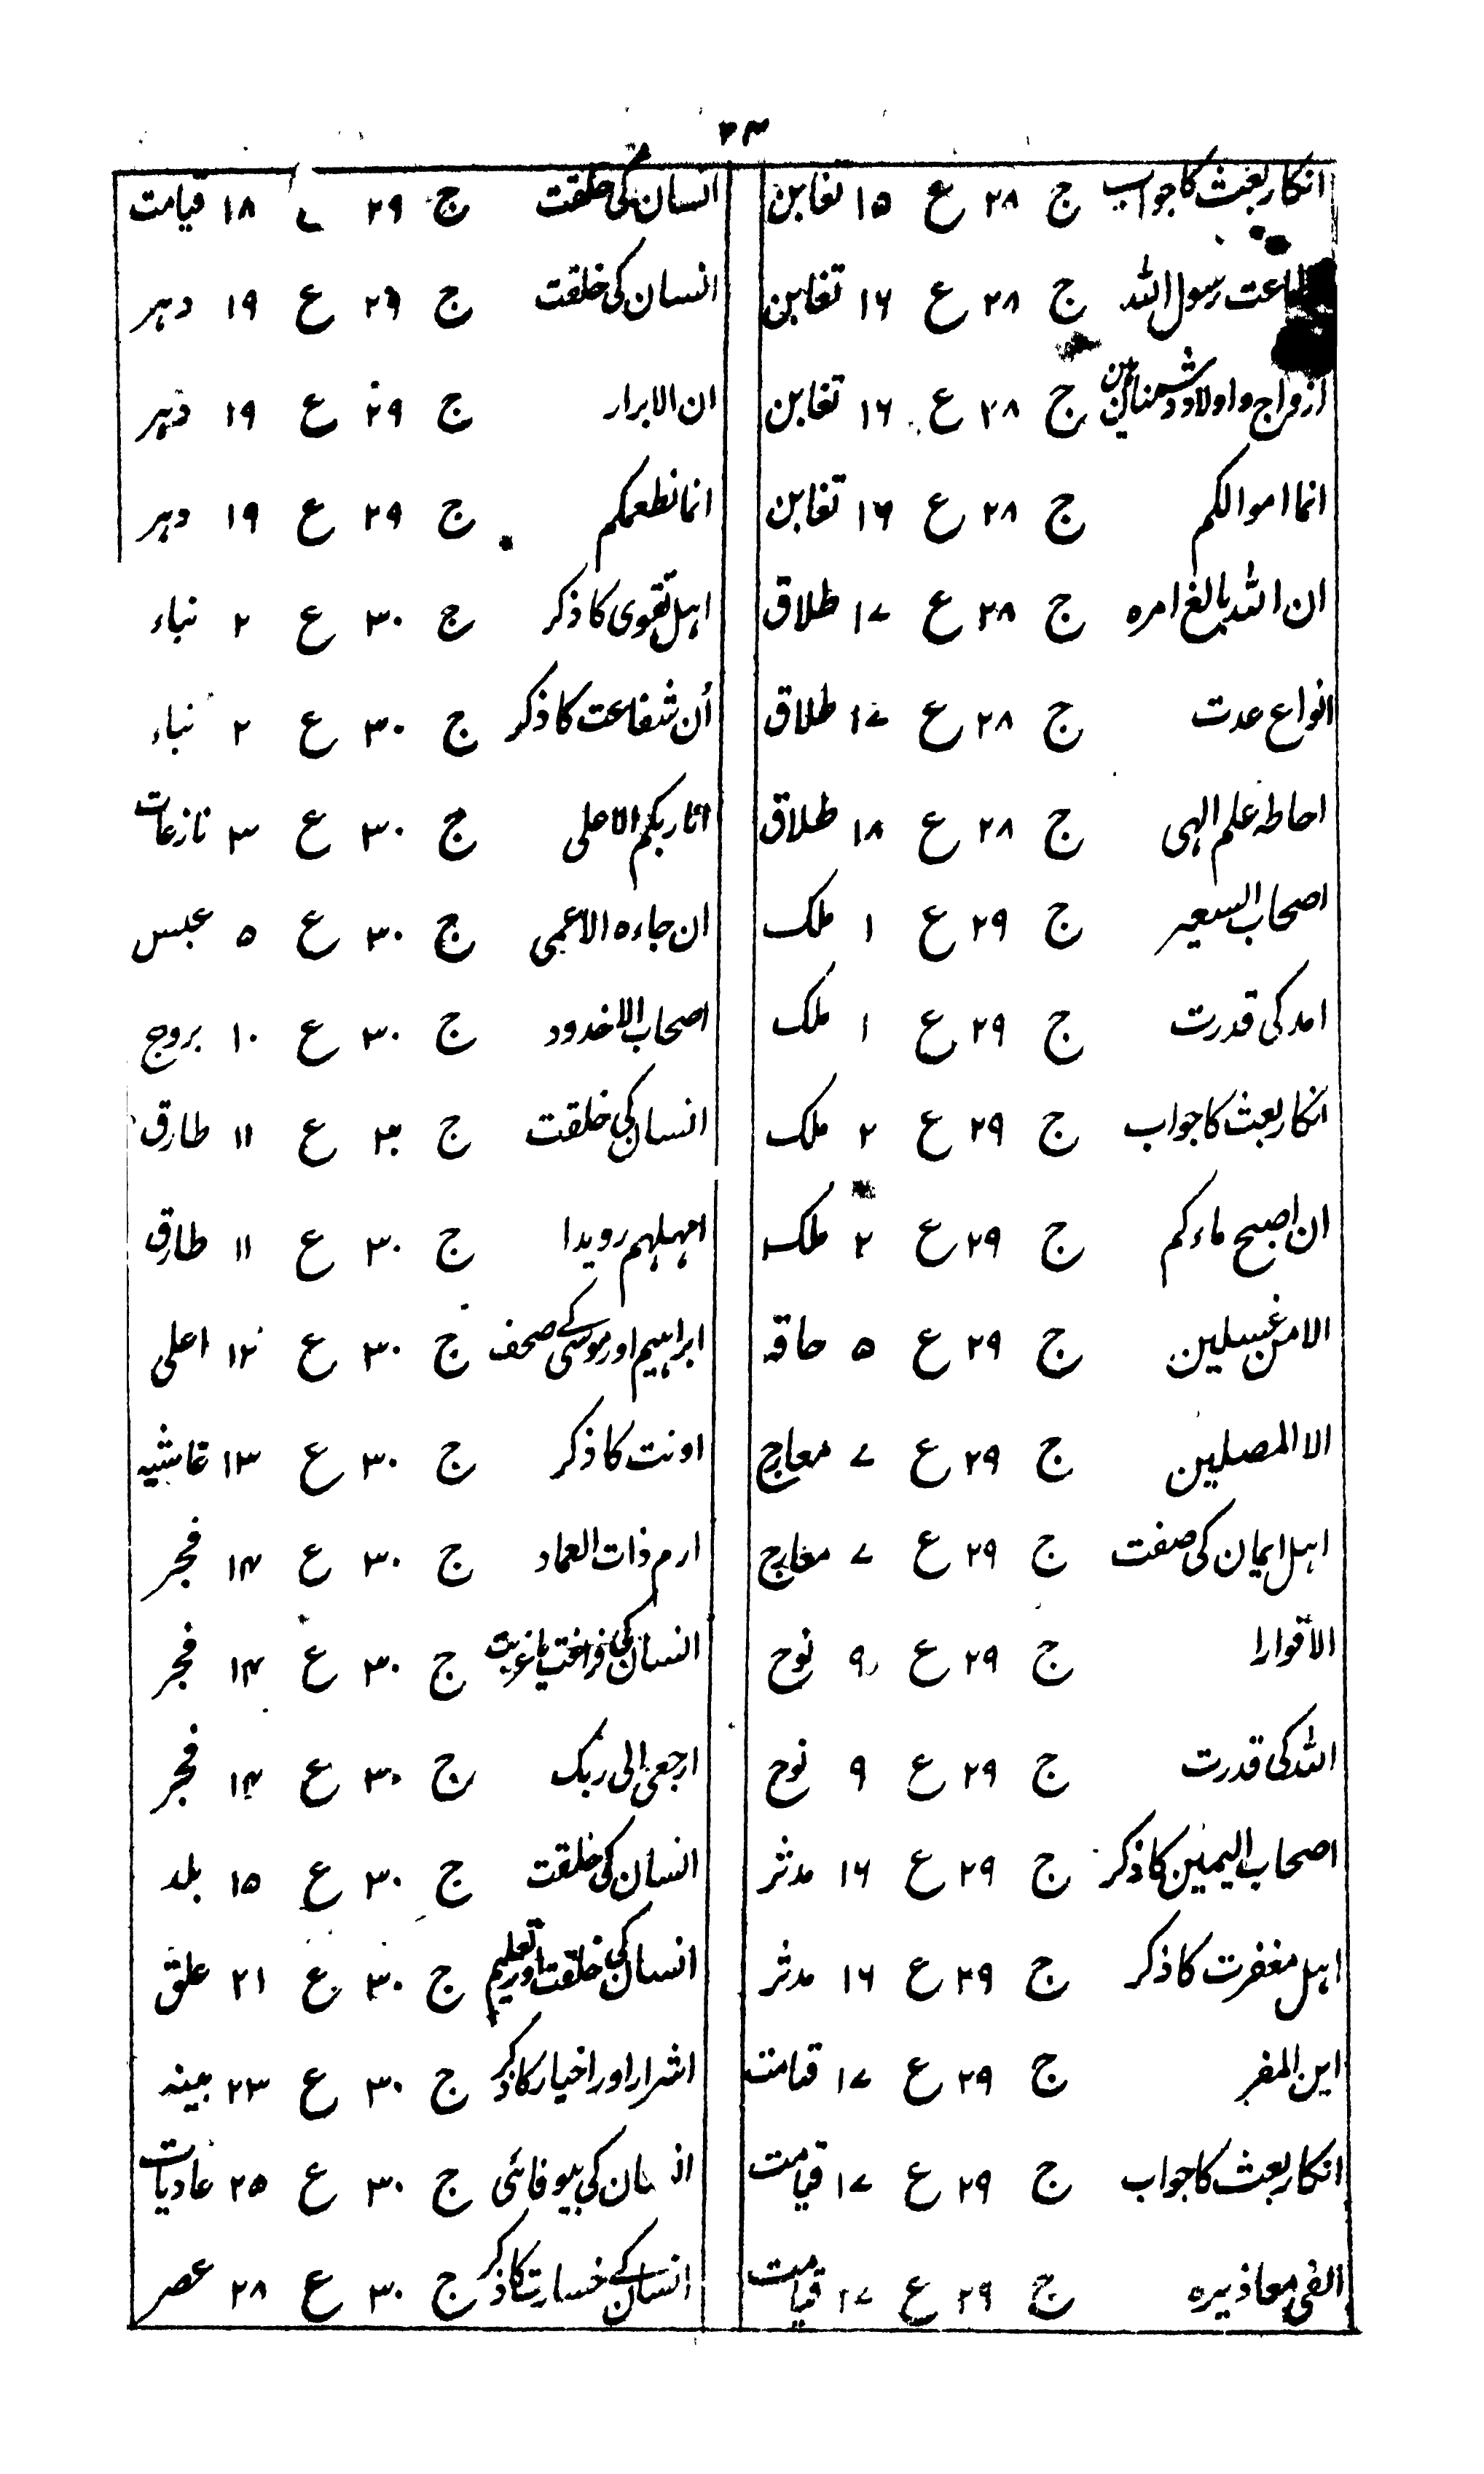 ۲۳
انکار بعث کا جواب ج ۲۸ ع ۱۵ تغابن
اطاعت رسول اللہ ج ۲۸ ع ۱۶ تغابن
ازواج و اولاد دشمن ہیں ج ۲۸ ع ۱۶ تغابن
انما اموالکم ج ۲۸ ع ۱۶ تغابن
ان اللہ بالغ امرہ ج ۲۸ ع ۱۷ طلاق
انواع عدت ج ۲۸ ع ۱۷ طلاق
احاطہ علم الہی ج ۲۸ ع ۱۸ طلاق
اصحاب السعیر ج ۲۹ ع ۱ ملک
امد کی قدرت ج ۲۹ ع ۱ ملک
انکار بعث کا جواب ج ۲۹ ع ۲ ملک
ان اصبح ماءکم ج ۲۹ ع ۲ ملک
الا من غسلین ج ۲۹ ع ۵ حاقہ
الا المصلین ج ۲۹ ع ۷ معارج
اہل ایمان کی صفت ج ۲۹ ع ۷ معارج
الا قوارا ج ۲۹ ع ۹ نوح
اللہ کی قدرت ج ۲۹ ع ۹ نوح
اصحاب الیمین کا ذکر ج ۲۹ ع ۱۶ مدثر
اہل مغفرت کا ذکر ج ۲۹ ع ۱۶ مدثر
این المفر ج ۲۹ ع ۱۷ قیامت
انکار بعث کا جواب ج ۲۹ ع ۱۷ قیامت
القی معاذیرہ ج ۲۹ ع ۲۷ قیامت
انسان کی خلقت ج ۲۹ ع ۱۸ قیامت
انسان کی خلقت ج ۲۹ ع ۱۹ دہر
ان الابرار ج ۲۹ ع ۱۹ دہر
انما نطعمکم ج ۲۹ ع ۱۹ دہر
اہل تقوی کا ذکر ج ۳۰ ع ۲ نباء
اُن شفاعت کا ذکر ج ۳۰ ع ۲ نباء
انا ربکم الاعلی ج ۳۰ ع ۳ نازعات
ان جاءہ الاعمی ج ۳۰ ع ۵ عبس
اصحاب الاخدود ج ۳۰ ع ۱۰ بروج
انسان کی خلقت ج ۳۰ ع ۱۱ طارق
امہلہم رویدا ج ۳۰ ع ۱۱ طارق
ابراہیم اور موسی کے صحف ج ۳۰ ع ۱۲ اعلی
اونت کا ذکر ج ۳۰ ع ۱۳ غاشیہ
ارم ذات العماد ج ۳۰ ع ۱۴ فجر
انسان کی فراخت یا غربت ج ۳۰ ع ۱۴ فجر
ارجعی الی ربک ج ۳۰ ع ۱۴ فجر
انسان کی خلقت ج ۳۰ ع ۱۵ بلد
انسان کی خلقت اور تعلیم ج ۳۰ ع ۲۱ علق
اشرار اور اخیار کا ذکر ج ۳۰ ع ۲۳ بینہ
انسان کی بیوفائی ج ۳۰ ع ۲۵ عادیات
انسان کے خسارت کا ذکر ج ۳۰ ع ۲۸ عصر